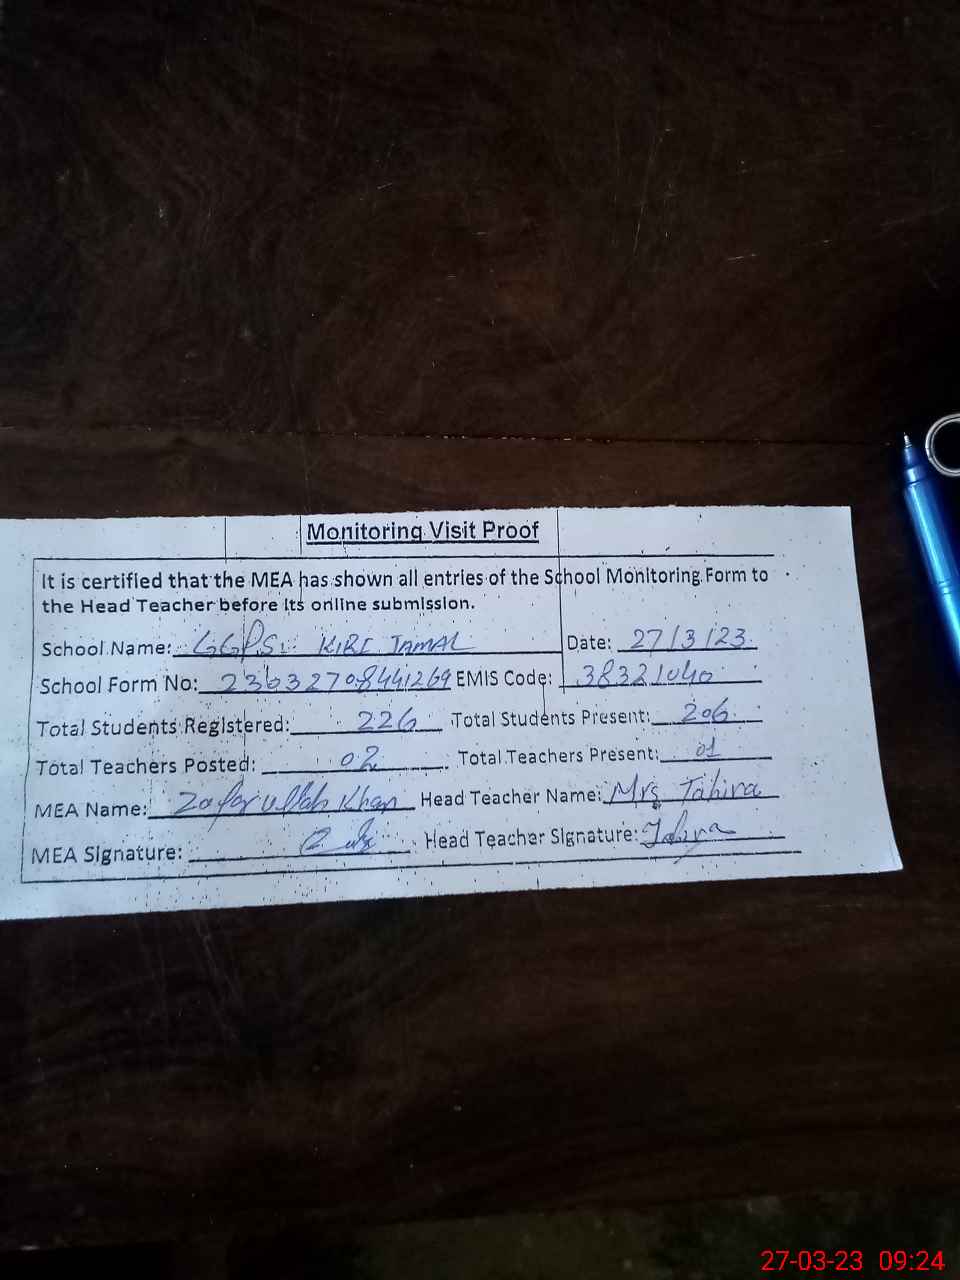 Monitoring Visit Proof
It is certified that the MEA has shown all entries of the School Monitoring Form to
the Head Teacher before its online submission.
School Name: GGPS KIRI JAMAL Date: 27/3/23
School Form No: 23032708441269 EMIS Code: 38321040
Total Students Registered: 226 Total Students Present: 206
Total Teachers Posted: 02 Total Teachers Present: 01
MEA Name: Zafar ullah Khan Head Teacher Name: Mrs Tahira
MEA Signature: Head Teacher Signature: Tahira
27-03-23 09:24